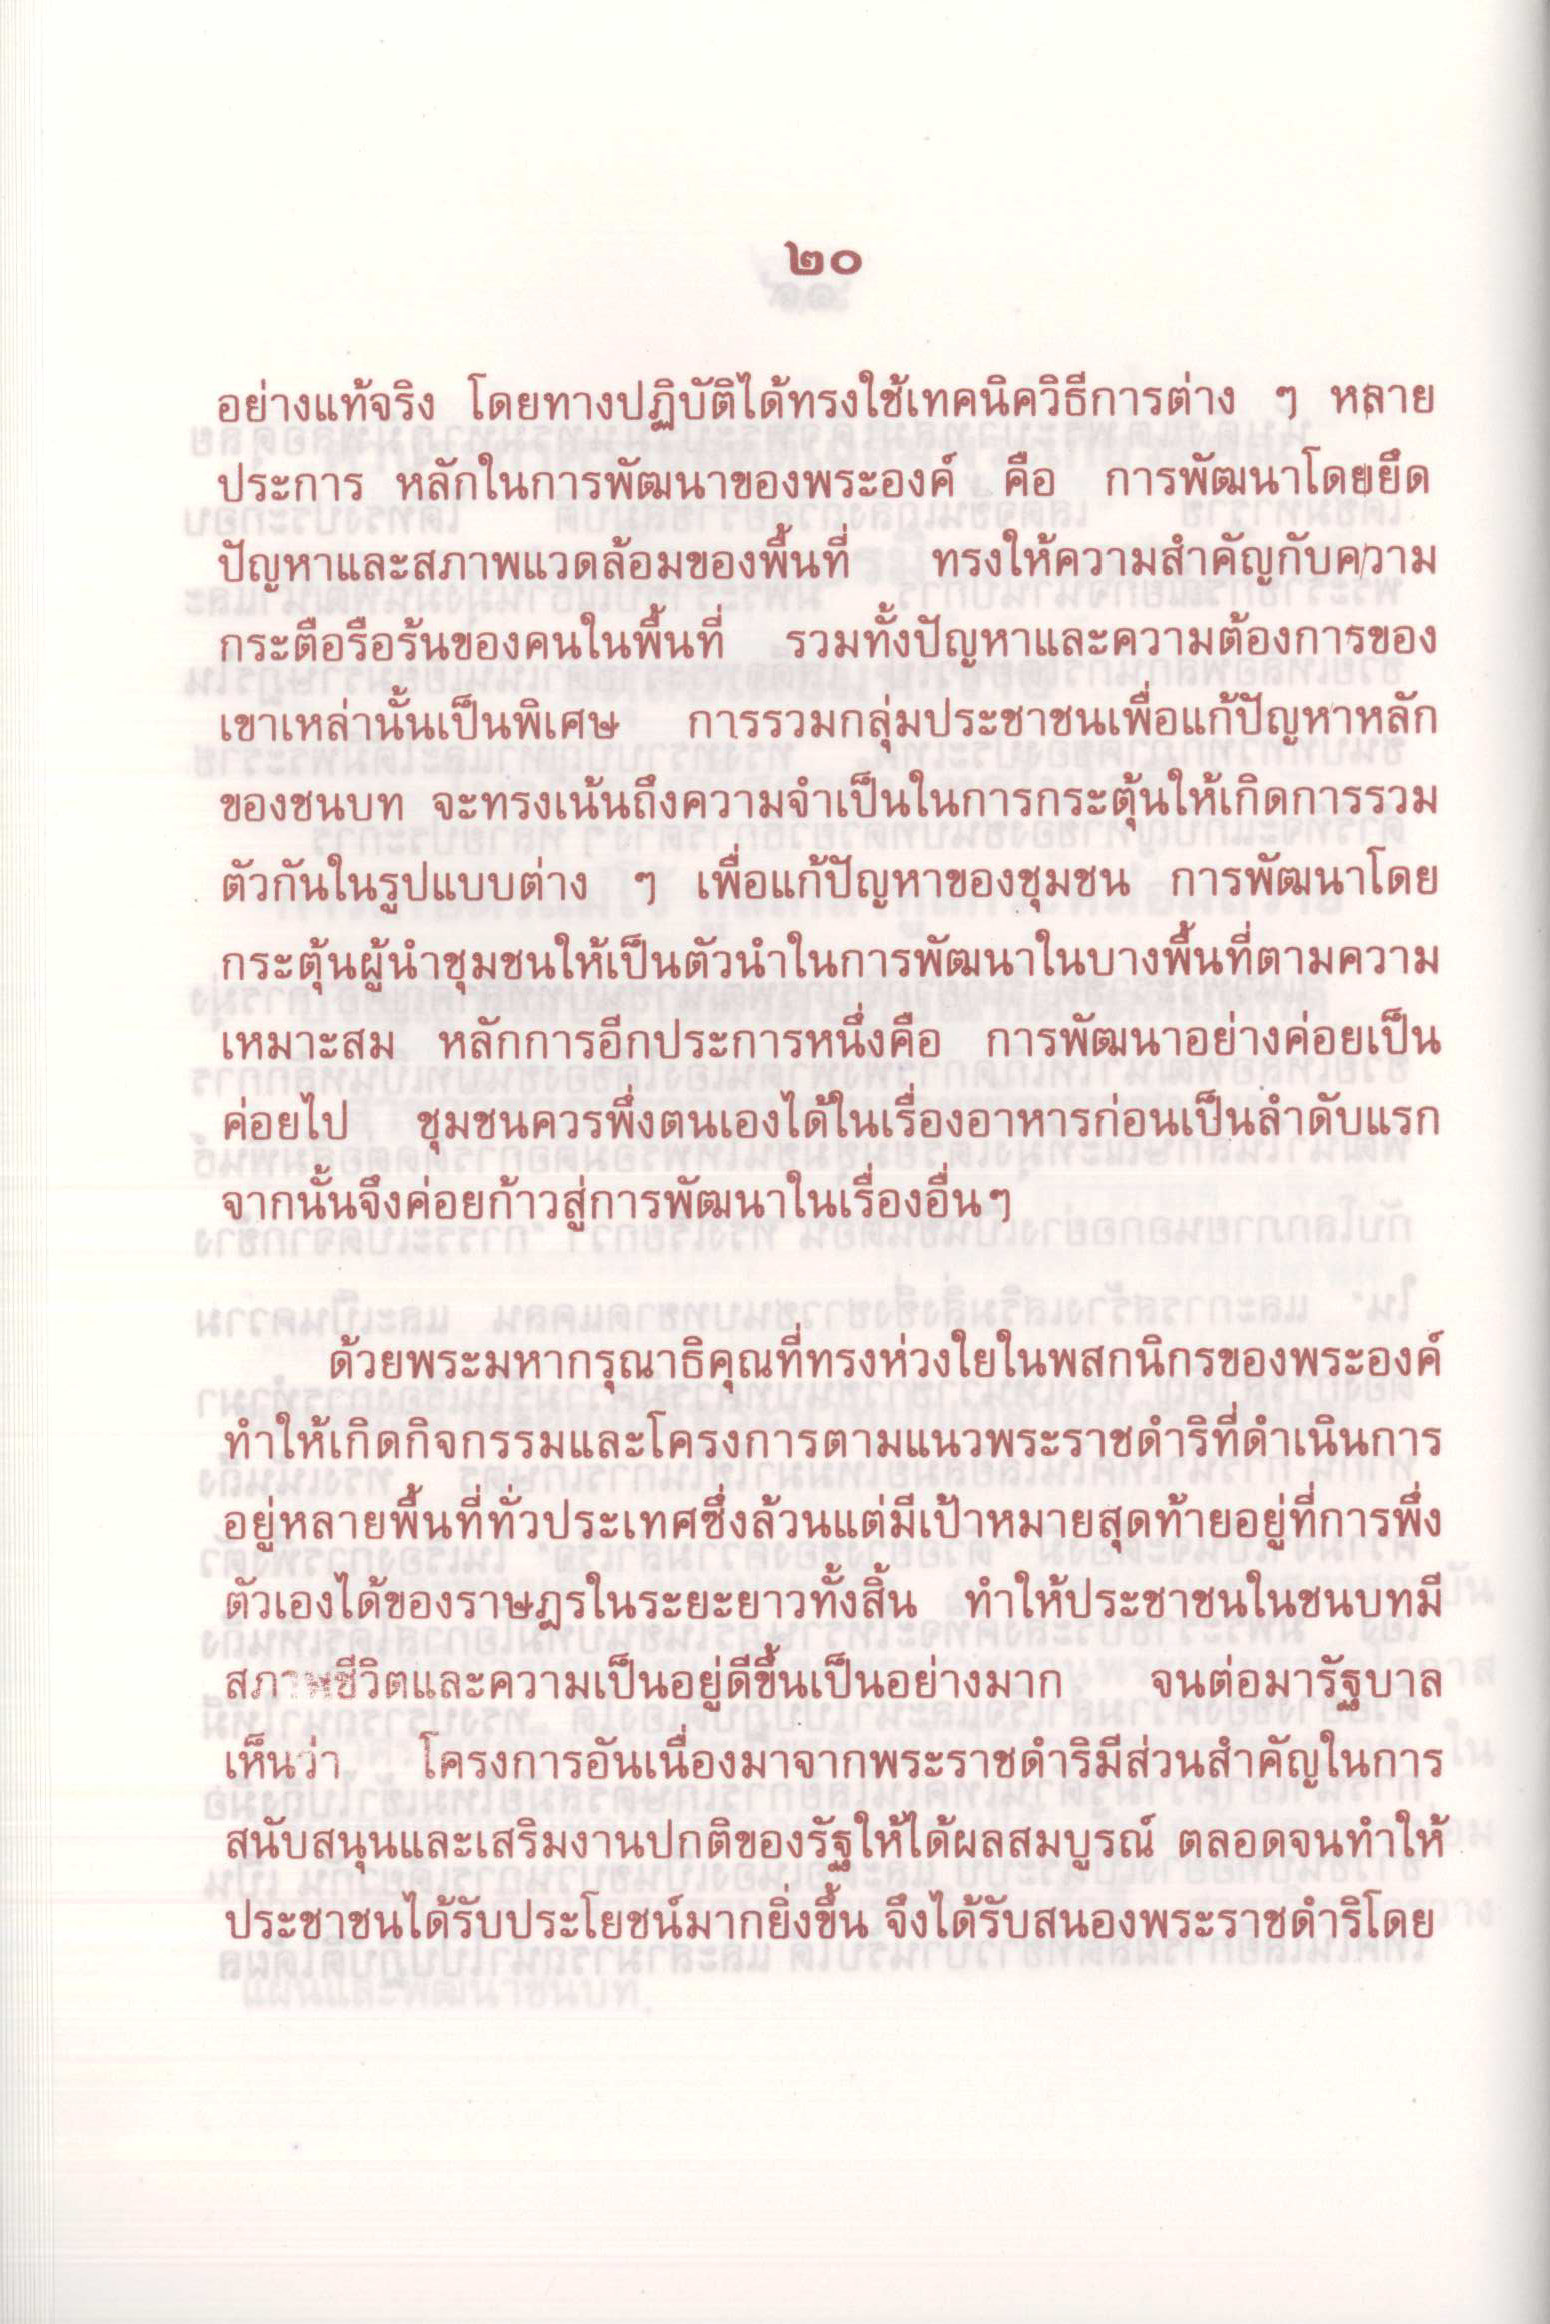 ๒๐
อย่างแท้จริง โดยทางปฏิบัติได้ทรงใช้เทคนิควิธีการต่าง ๆ หลาย
ประการ หลักในการพัฒนาของพระองค์ คือ การพัฒนาโดยยึด
ปัญหาและสภาพแวดล้อมของพื้นที่ ทรงให้ความสำคัญกับความ
กระตือรือร้นของคนในพื้นที่ รวมทั้งปัญหาและความต้องการของ
เขาเหล่านั้นเป็นพิเศษ การรวมกลุ่มประชาชนเพื่อแก้ปัญหาหลัก
ของชนบท จะทรงเน้นถึงความจำเป็นในการกระตุ้นให้เกิดการรวม
ตัวกันในรูปแบบต่าง ๆ เพื่อแก้ปัญหาของชุมชน การพัฒนาโดย
กระตุ้นผู้นำชุมชนให้เป็นตัวนำในการพัฒนาในบางพื้นที่ตามความ
เหมาะสม หลักการอีกประการหนึ่งคือ การพัฒนาอย่างค่อยเป็น
ค่อยไป ชุมชนควรพึ่งตนเองได้ในเรื่องอาหารก่อนเป็นลำดับแรก
จากนั้นจึงค่อยก้าวสู่การพัฒนาในเรื่องอื่นๆ
ด้วยพระมหากรุณาธิคุณที่ทรงห่วงใยในพสกนิกรของพระองค์
ทำให้เกิดกิจกรรมและโครงการตามแนวพระราชดำริที่ดำเนินการ
อยู่หลายพื้นที่ทั่วประเทศซึ่งล้วนแต่มีเป้าหมายสุดท้ายอยู่ที่การพึ่ง
ตัวเองได้ของราษฎรในระยะยาวทั้งสิ้น ทำให้ประชาชนในชนบทมี
สภาพชีวิตและความเป็นอยู่ดีขึ้นเป็นอย่างมาก จนต่อมารัฐบาล
เห็นว่า โครงการอันเนื่องมาจากพระราชดำริมีส่วนสำคัญในการ
สนับสนุนและเสริมงานปกติของรัฐให้ได้ผลสมบูรณ์ ตลอดจนทำให้
ประชาชนได้รับประโยชน์มากยิ่งขึ้น จึงได้รับสนองพระราชดำริโดย